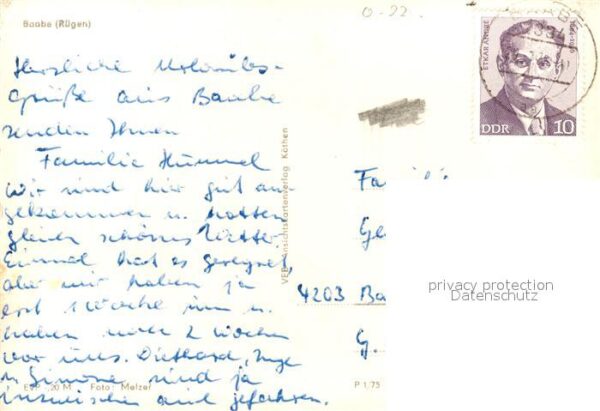 Baabe (Rügen)
Herzliche Urlaubs-
grüße aus Baabe
senden Ihnen
Familie Hummel
Wir sind hier gut an
gekommen u. hatten
gleich schönes Wetter.
Einmal hat es geregnet,
aber wir haben ja
erst 1 Woche um u.
haben noch 2 Wochen
vor uns. Diethard, Inge
u. Simone sind ja
inzwischen gefahren.
EVP 20 M Foto: Melzer
P 1/75
VEB Ansichtskartenverlag Köthen
0-22
ETKAR ANDRÉ
DDR 10
Fa
Ge
4203 Ba
G.
privacy protection
Datenschutz